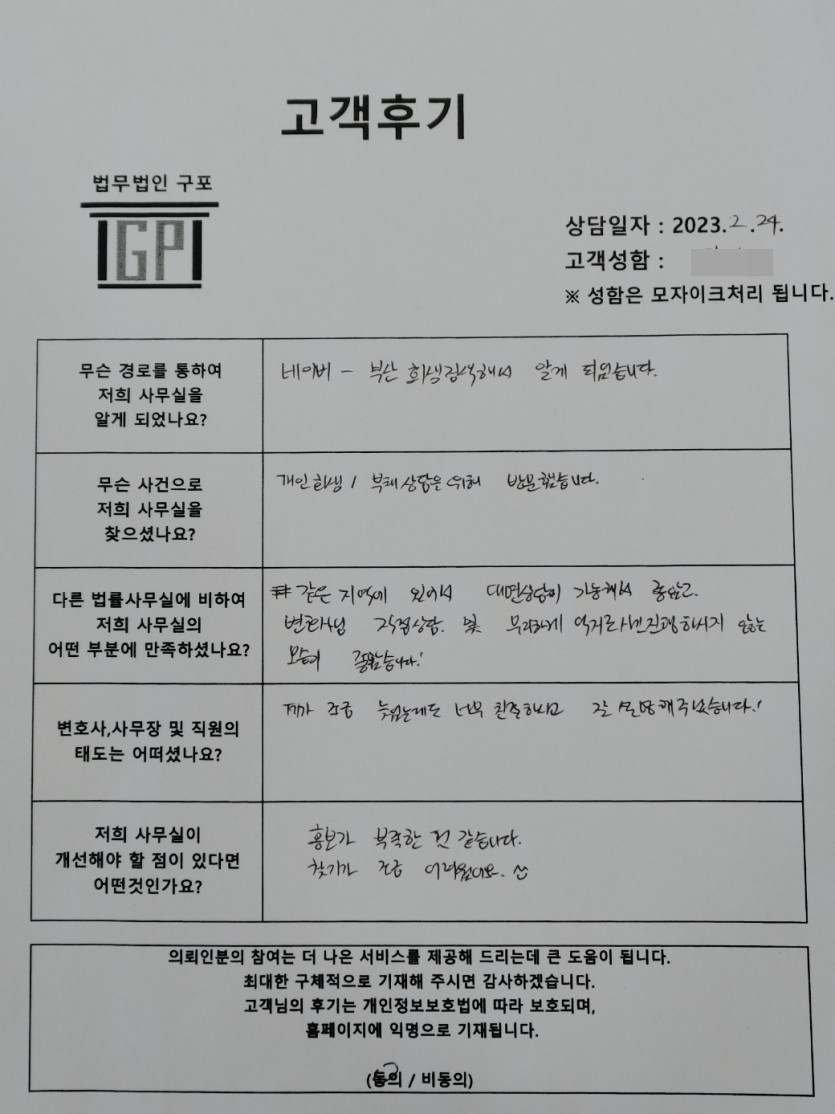 고객후기
법무법인 구포
GP
상담일자 : 2023. 2. 24.
고객성함 :
※ 성함은 모자이크처리 됩니다.
무슨 경로를 통하여
저희 사무실을
알게 되었나요?
네이버 - 부산 회생검색해서 알게 되었습니다.
무슨 사건으로
저희 사무실을
찾으셨나요?
개인회생 / 부채상담을 위해 방문했습니다.
다른 법률사무실에 비하여
저희 사무실의
어떤 부분에 만족하셨나요?
같은 지역에 있어서 대면상담이 가능해서 좋았고
변호사님 직접상담. 및 무리하게 억지로 진행하시지 않는
모습이 좋았습니다!
변호사,사무장 및 직원의
태도는 어떠셨나요?
제가 조금 늦었는데도 너무 친절하시고 잘 설명해주셨습니다!
저희 사무실이
개선해야 할 점이 있다면
어떤것인가요?
홍보가 부족한 것 같습니다.
찾기가 조금 어려웠어요.
의뢰인분의 참여는 더 나은 서비스를 제공해 드리는데 큰 도움이 됩니다.
최대한 구체적으로 기재해 주시면 감사하겠습니다.
고객님의 후기는 개인정보보호법에 따라 보호되며,
홈페이지에 익명으로 기재됩니다.
(동의 / 비동의)